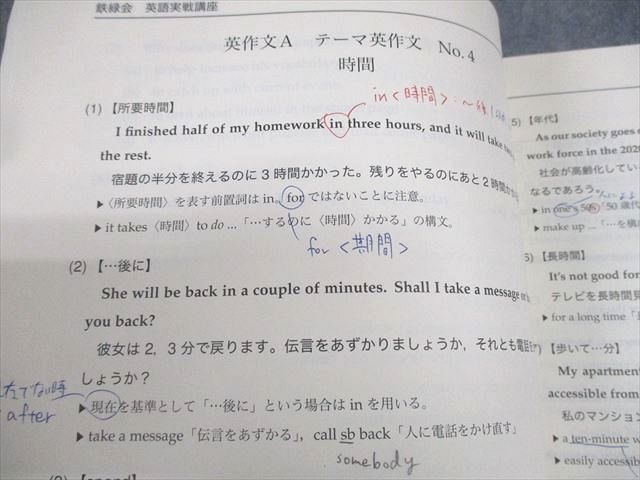 鉄緑会 英語実戦講座
英作文A テーマ英作文 No. 4
時間
in<時間>:~後
(1)【所要時間】
I finished half of my homework in three hours, and it will take
the rest.
宿題の半分を終えるのに3時間かかった。残りをやるのにあと2時間
▶〈所要時間〉を表す前置詞は in。for ではないことに注意。
▶ it takes〈時間〉to do ...「…するのに〈時間〉かかる」の構文。
for <期間>
(2)【…後に】
She will be back in a couple of minutes. Shall I take a message or
you back?
彼女は2,3分で戻ります。伝言をあずかりましょうか,それとも電話
しょうか?
たてない時
after
▶現在を基準として「…後に」という場合は in を用いる。
▶ take a message「伝言をあずかる」, call sb back「人に電話をかけ直す」
somebody
5)【年代】
As our society goes
work force in the 202
社会が高齢化してい
なるであろう。
▶ in one's 50s「50歳代
▶ make up ...「…を構
6)【長時間】
It's not good for
テレビを長時間見
▶ for a long time「
)【歩いて…分】
My apartment
accessible from
私のマンション
▶ a ten-minute w
▶ easily accessib